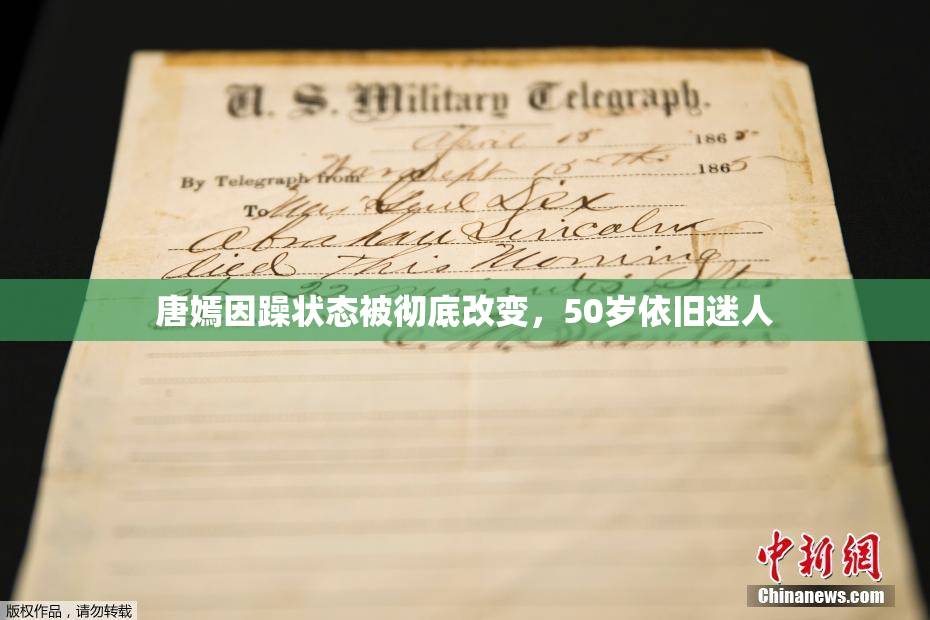 U. S. Military Telegraph.
April 15 1865
By Telegraph from War Dept 15th 1865
To Maj Genl Dix
Abraham Lincoln
died This Morning
at 22 minutes after
唐嫣因躁状态被彻底改变，50岁依旧迷人
E. M. Stanton
中新网
Chinanews.com
版权作品，请勿转载